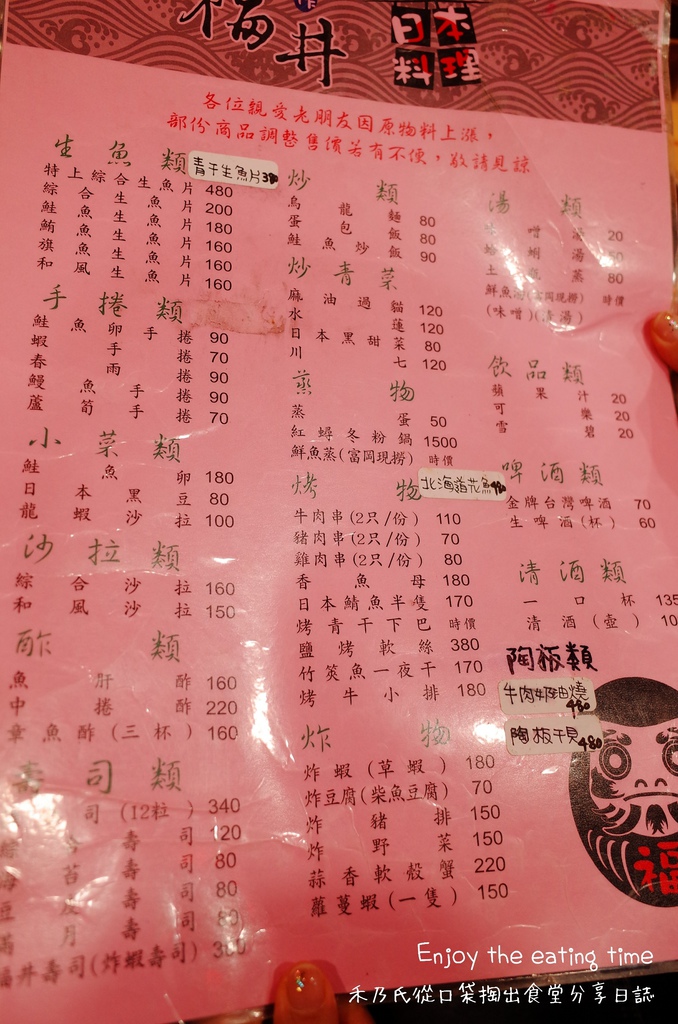 福井
日本
料理
各位親愛老朋友因原物料上漲，
部份商品調整售價若有不便，敬請見諒
生魚類
青干生魚片
特上綜合生魚片 480
綜合生魚片 200
鮭魚生魚片 180
鮪魚生魚片 160
旗魚生魚片 160
和風生魚片 160
手捲類
鮭魚卵手捲 90
蝦手捲 70
春雨捲 90
鰻魚手捲 90
蘆筍手捲 70
小菜類
鮭魚卵 180
日本黑豆 80
龍蝦沙拉 100
沙拉類
綜合沙拉 160
和風沙拉 150
酢類
魚肝酢 160
中捲酢 220
章魚酢(三杯) 160
壽司類
司(12粒) 340
壽司 120
苔壽司 80
豆皮壽司 80
滿月壽司 80
福井壽司(炸蝦壽司)
炒類
烏龍麵 80
蛋包飯 80
鮭魚炒飯 90
炒青菜
麻油過貓 120
水蓮 120
日本黑甜菜 80
川七 120
蒸物
蒸蛋 50
紅蟳冬粉鍋 1500
鮮魚蒸(富岡現撈) 時價
烤物
北海道花魚
牛肉串(2只/份) 110
豬肉串(2只/份) 70
雞肉串(2只/份) 80
香魚母 180
日本鯖魚半隻 170
烤青干下巴 時價
鹽烤軟絲 380
竹筴魚一夜干 170
烤牛小排 180
炸物
炸蝦(草蝦) 180
炸豆腐(柴魚豆腐) 70
炸豬排 150
炸野菜 150
蒜香軟殼蟹 220
蘿蔓蝦(一隻) 150
湯類
味噌湯 20
蛤蜊湯
土瓶蒸 80
鮮魚湯(富岡現撈) 時價
(味噌)(清湯)
飲品類
蘋果汁 20
可樂 20
雪碧 20
啤酒類
金牌台灣啤酒 70
生啤酒(杯) 60
清酒類
一口杯 135
清酒(壺)
陶板類
牛肉奶油燒 480
陶板干貝 480
福
Enjoy the eating time
禾乃氏從口袋掏出食堂分享日誌